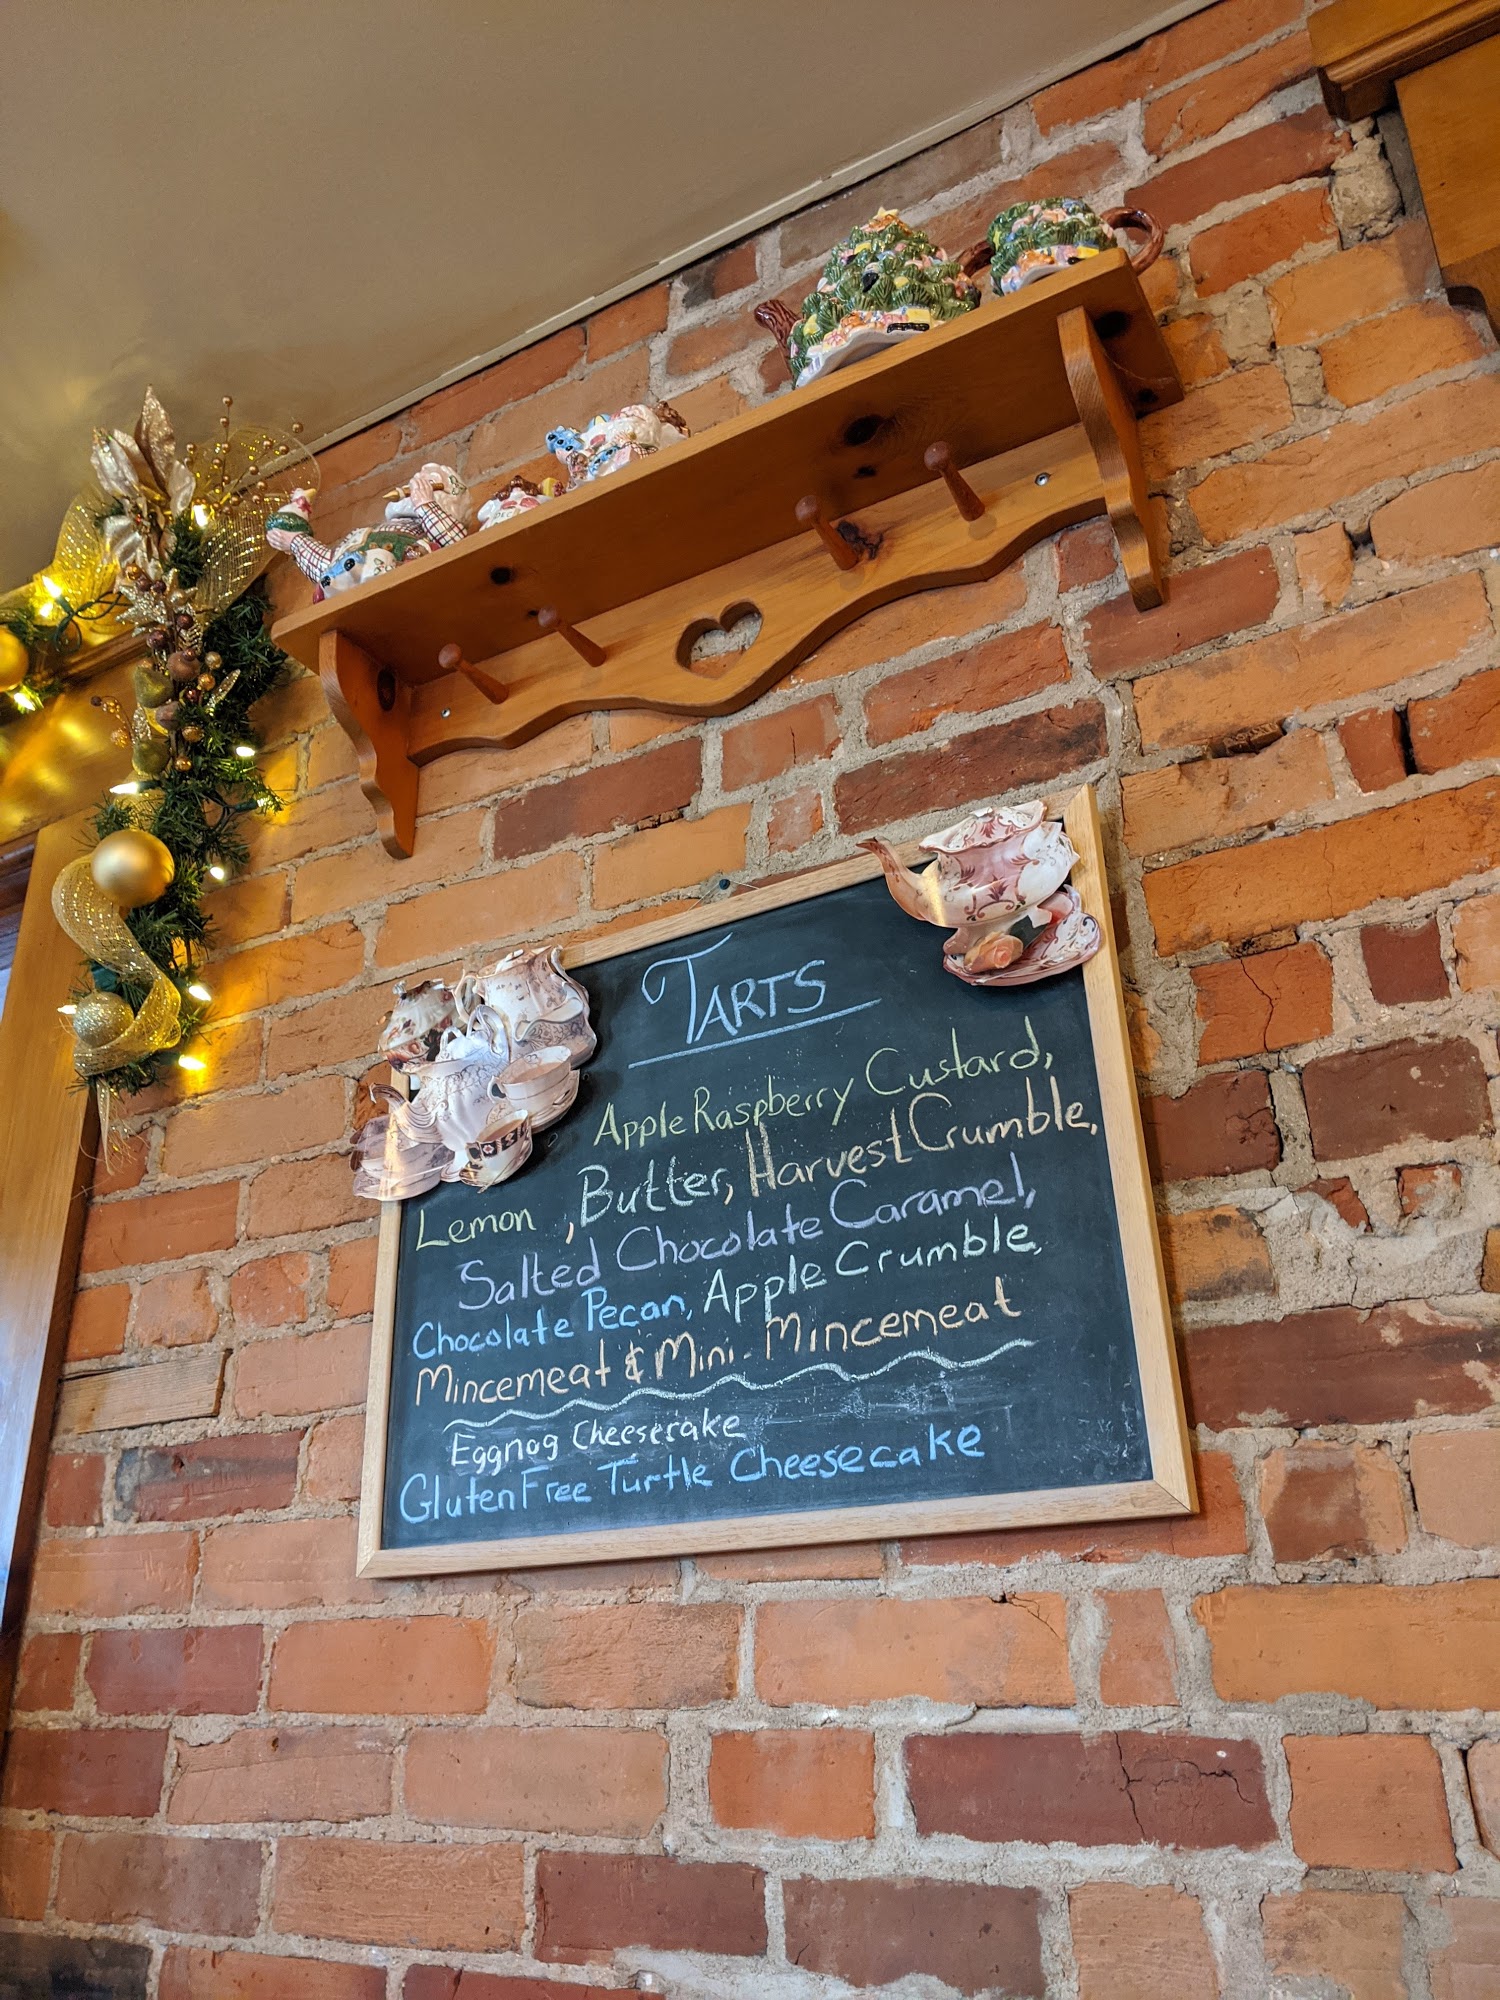 TARTS
Apple Raspberry Custard,
Lemon , Butter, Harvest Crumble,
Salted Chocolate Caramel,
Chocolate Pecan, Apple Crumble,
Mincemeat & Mini-Mincemeat
Eggnog Cheesecake
Gluten Free Turtle Cheesecake